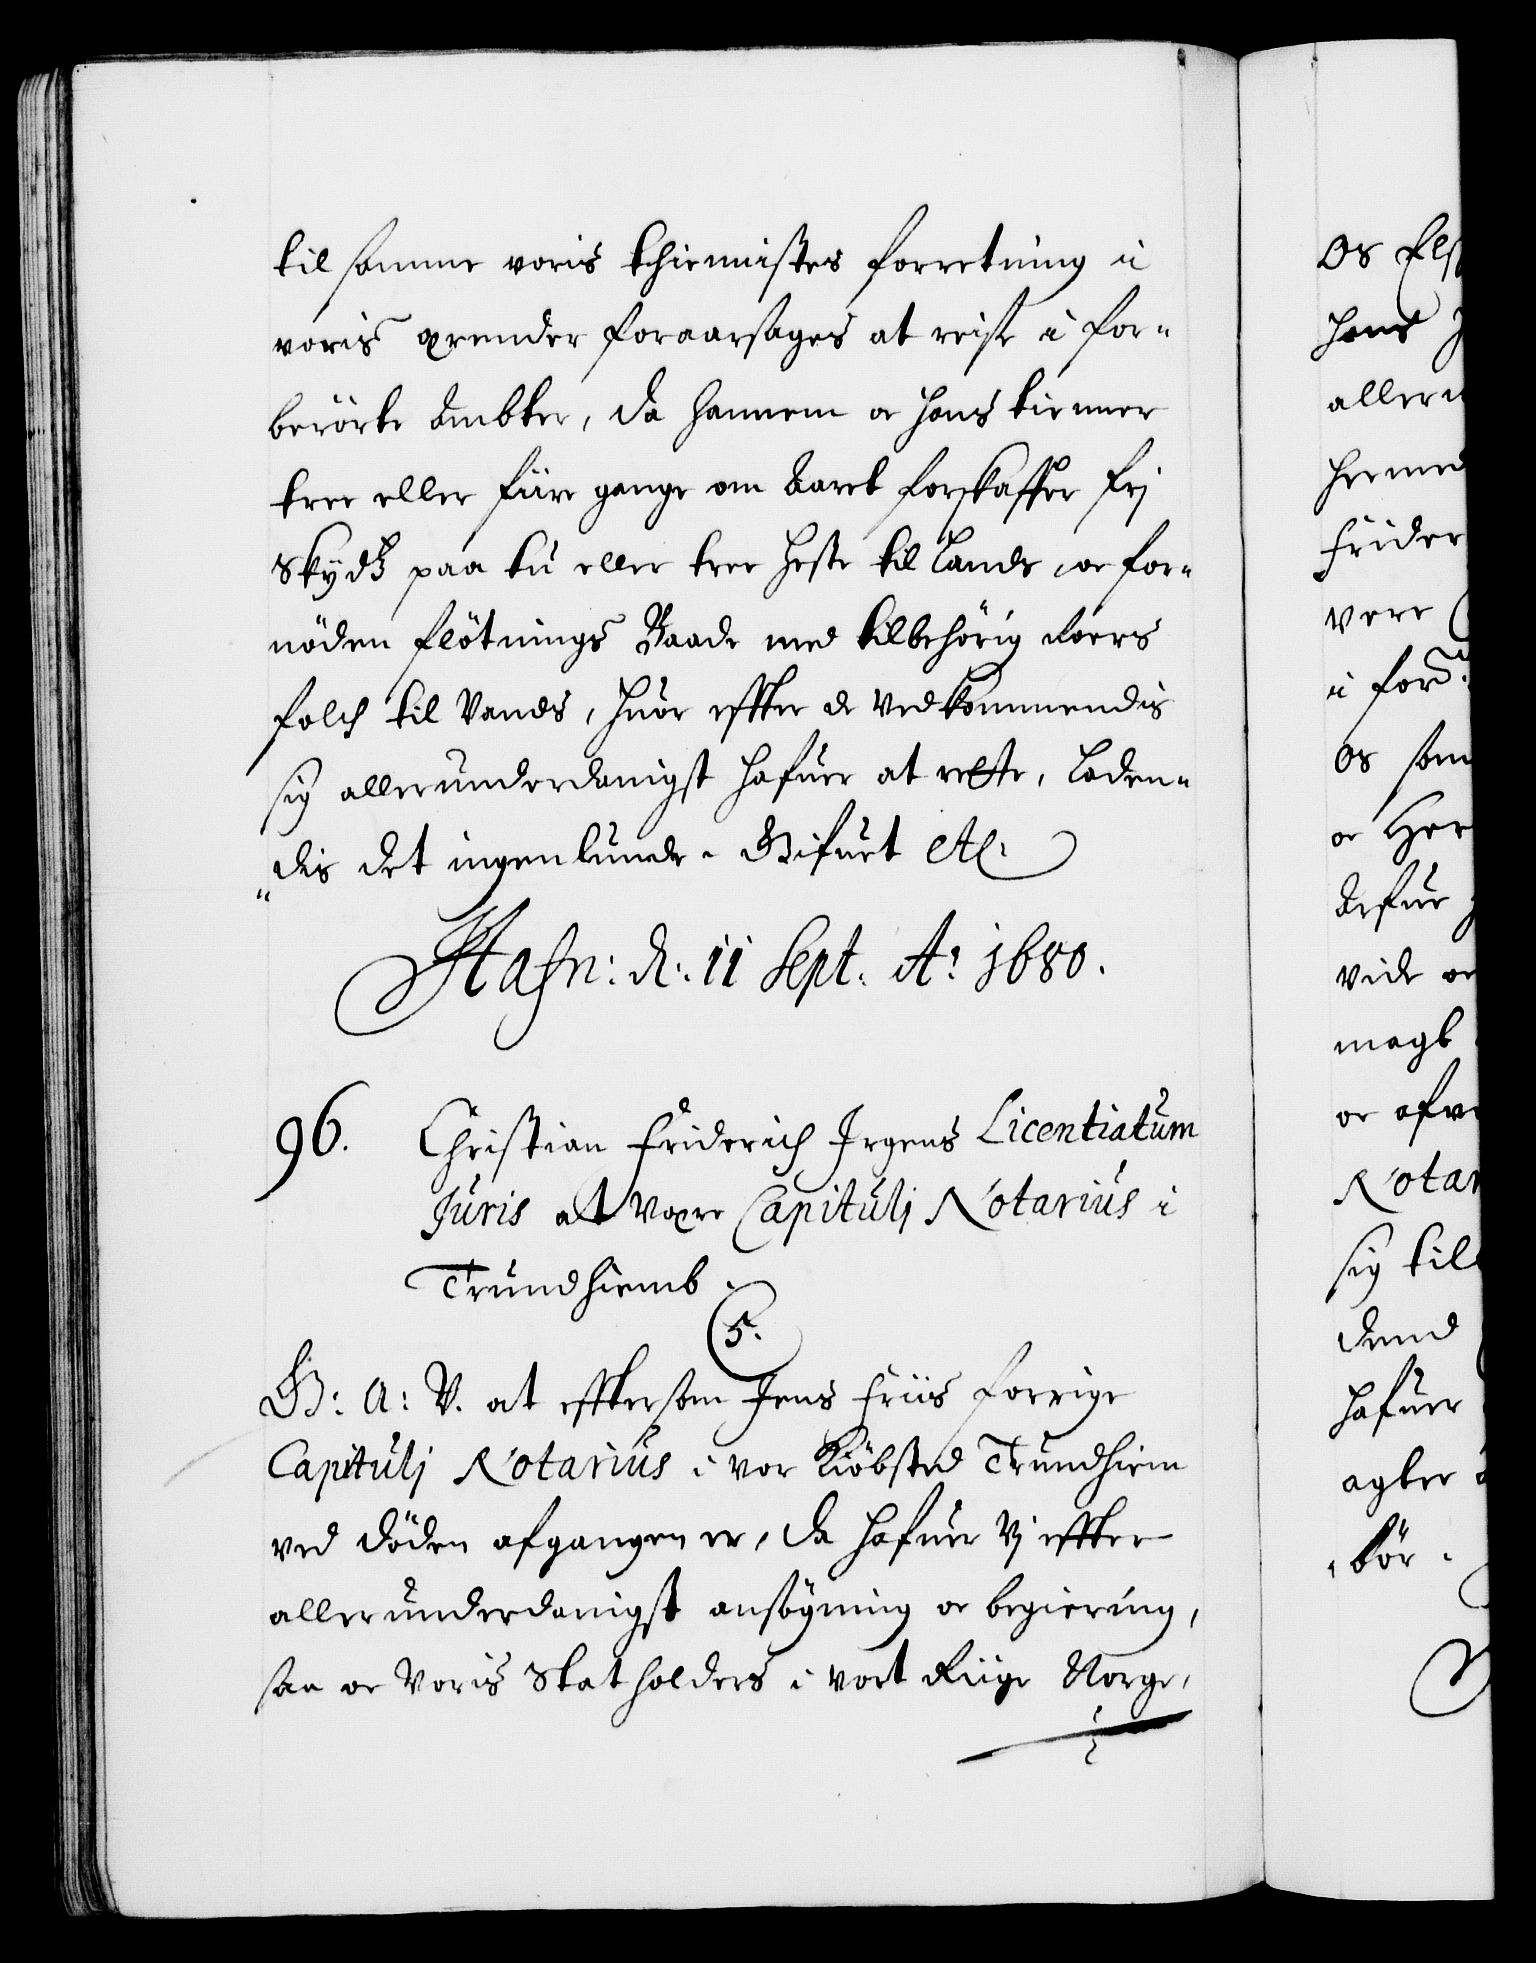 til samme voris thienistes forretning i
voris ærender foraarsages at reise i for-
berörte Ambter, da hannem oc hans tienner
tree eller fiire gange om Aaret forskaffer frj
Skydtz paa tu eller tree heste til Lands, oc for-
nöden flötnings Baade med tilbehörig Roers
folch til Vands, huor effter de Vedkommendis
sig allerunderdanigst hafuer at rette, Laden-
dis det ingenlunde. Gifuet etc:
Hafn: d: 11 Sept. Ao 1680.
96. Christian Friderich Irgens Licentiatum
Juris at være Capitulj Notarius i
Trundhiemb.
5.
G: A: V. at efftersom Jens Friis forrige
Capitulj Notarius i vor Kiöbsted Trundhiem
ved döden afgangen er, da hafuer Vj effter
allerunderdanigst ansögning oc begiering,
saa oc Voris Statholders i vort Riige Norge,
Os Els
hans
allern
hermed
Frider
vere
i for
os som
oc Her
derfuer
vide oc
magt
oc afve
Notar
sig til
dend
hafuer
agter
bör.